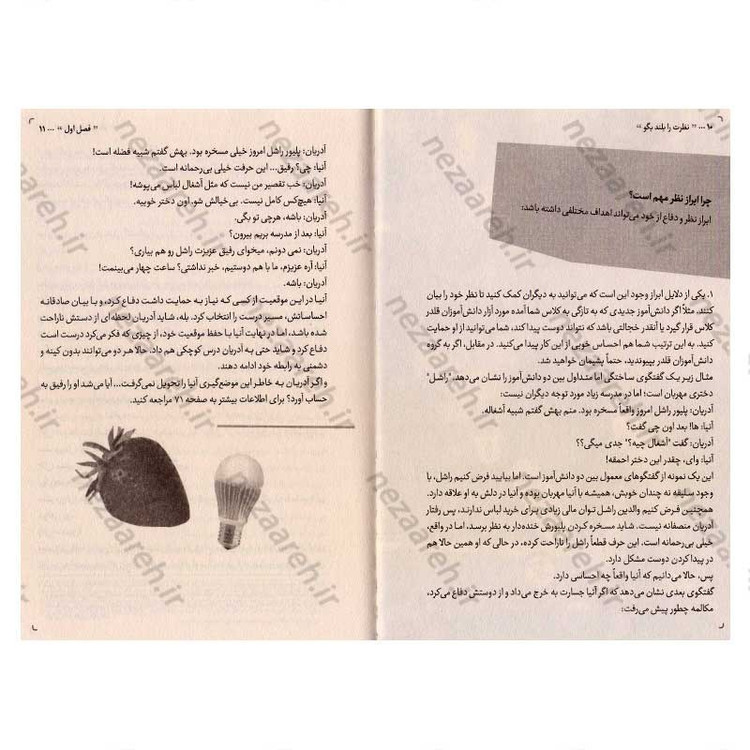 ۱۰ ... " نظرت را بلند بگو "
چرا ابراز نظر مهم است؟
ابراز نظر و دفاع از خود می‌تواند اهداف مختلفی داشته باشد:
۱. یکی از دلایل ابراز وجود این است که می‌توانید به دیگران کمک کنید تا نظر خود را بیان
کنند. مثلاً اگر دانش‌آموز جدیدی که به تازگی به کلاس شما آمده مورد آزار دانش‌آموزان قلدر
کلاس قرار گیرد یا آنقدر خجالتی باشد که نتواند دوست پیدا کند، شما می‌توانید از او حمایت
کنید. به این ترتیب شما هم احساس خوبی از این کار پیدا می‌کنید. در مقابل، اگر به گروه
دانش‌آموزان قلدر بپیوندید، حتماً پشیمان خواهید شد.
مثال زیر یک گفتگوی ساختگی اما متداول بین دو دانش‌آموز را نشان می‌دهد. "راشل"
دختری مهربان است؛ اما در مدرسه زیاد مورد توجه دیگران نیست:
آدریان: پلیور راشل امروز واقعاً مسخره بود. منم بهش گفتم شبیه آشغاله.
آنیا: ها! بعد اون چی گفت؟
آدریان: گفت "آشغال چیه؟" جدی میگی؟؟
آنیا: وای، چقدر این دختر احمقه!
این یک نمونه از گفتگوهای معمول بین دو دانش‌آموز است. اما بیایید فرض کنیم راشل، با
وجود سلیقه نه چندان خوبش، همیشه با آنیا مهربان بوده و آنیا در دلش به او علاقه دارد.
همچنین فرض کنیم والدین راشل توان مالی زیادی برای خرید لباس ندارند، پس رفتار
آدریان منصفانه نیست. شاید مسخره کردن پلیورش خنده‌دار به نظر برسد، اما در واقع،
خیلی بی‌رحمانه است. این حرف قطعاً راشل را ناراحت کرده، در حالی که او همین حالا هم
در پیدا کردن دوست مشکل دارد.
پس، حالا می‌دانیم که آنیا واقعاً چه احساسی دارد.
گفتگوی بعدی نشان می‌دهد که اگر آنیا جسارت به خرج می‌داد و از دوستش دفاع می‌کرد،
مکالمه چطور پیش می‌رفت:
" فصل اول " ... ۱۱
آدریان: پلیور راشل امروز خیلی مسخره بود. بهش گفتم شبیه فضله است!
آنیا: چی؟ رفیق... این حرفت خیلی بی‌رحمانه است.
آدریان: خب تقصیر من نیست که مثل آشغال لباس می‌پوشه!
آنیا: هیچ‌کس کامل نیست. بی خیالش شو. اون دختر خوبیه.
آدریان: باشه، هرچی تو بگی.
آنیا: بعد از مدرسه بریم بیرون؟
آدریان: نمی دونم. میخوای رفیق عزیزت راشل رو هم بیاری؟
آنیا: آره عزیزم، ما با هم دوستیم، خبر نداشتی؟ ساعت چهار می‌بینمت!
آدریان: باشه.
آنیا در این موقعیت از کسی که نیاز به حمایت داشت دفاع کرد، و با بیان صادقانه
احساساتش، مسیر درست را انتخاب کرد. بله، شاید آدریان لحظه‌ای از دستش ناراحت
شده باشد، اما در نهایت آنیا با حفظ موقعیت خود، از چیزی که فکر می‌کرد درست است
دفاع کرد و شاید حتی به آدریان درس کوچکی هم داد. حالا هر دو می‌توانند بدون کینه و
دشمنی به رابطه خود ادامه دهند.
و اگر آدریان به خاطر این موضع‌گیری آنیا را تحویل نمی‌گرفت... آیا می‌شد او را رفیق به
حساب آورد؟ برای اطلاعات بیشتر به صفحه ۷۱ مراجعه کنید.
nezaareh.ir